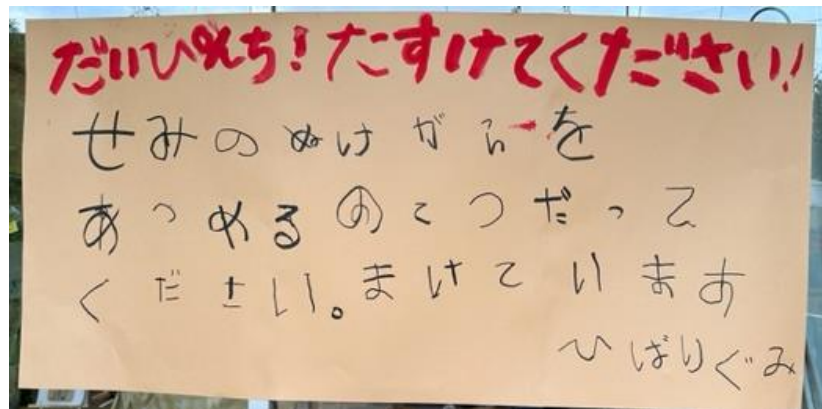 だいぴんち!たすけてください!
せみのぬけがらを
あつめるのてつだって
ください。まけています
ひばりぐみ